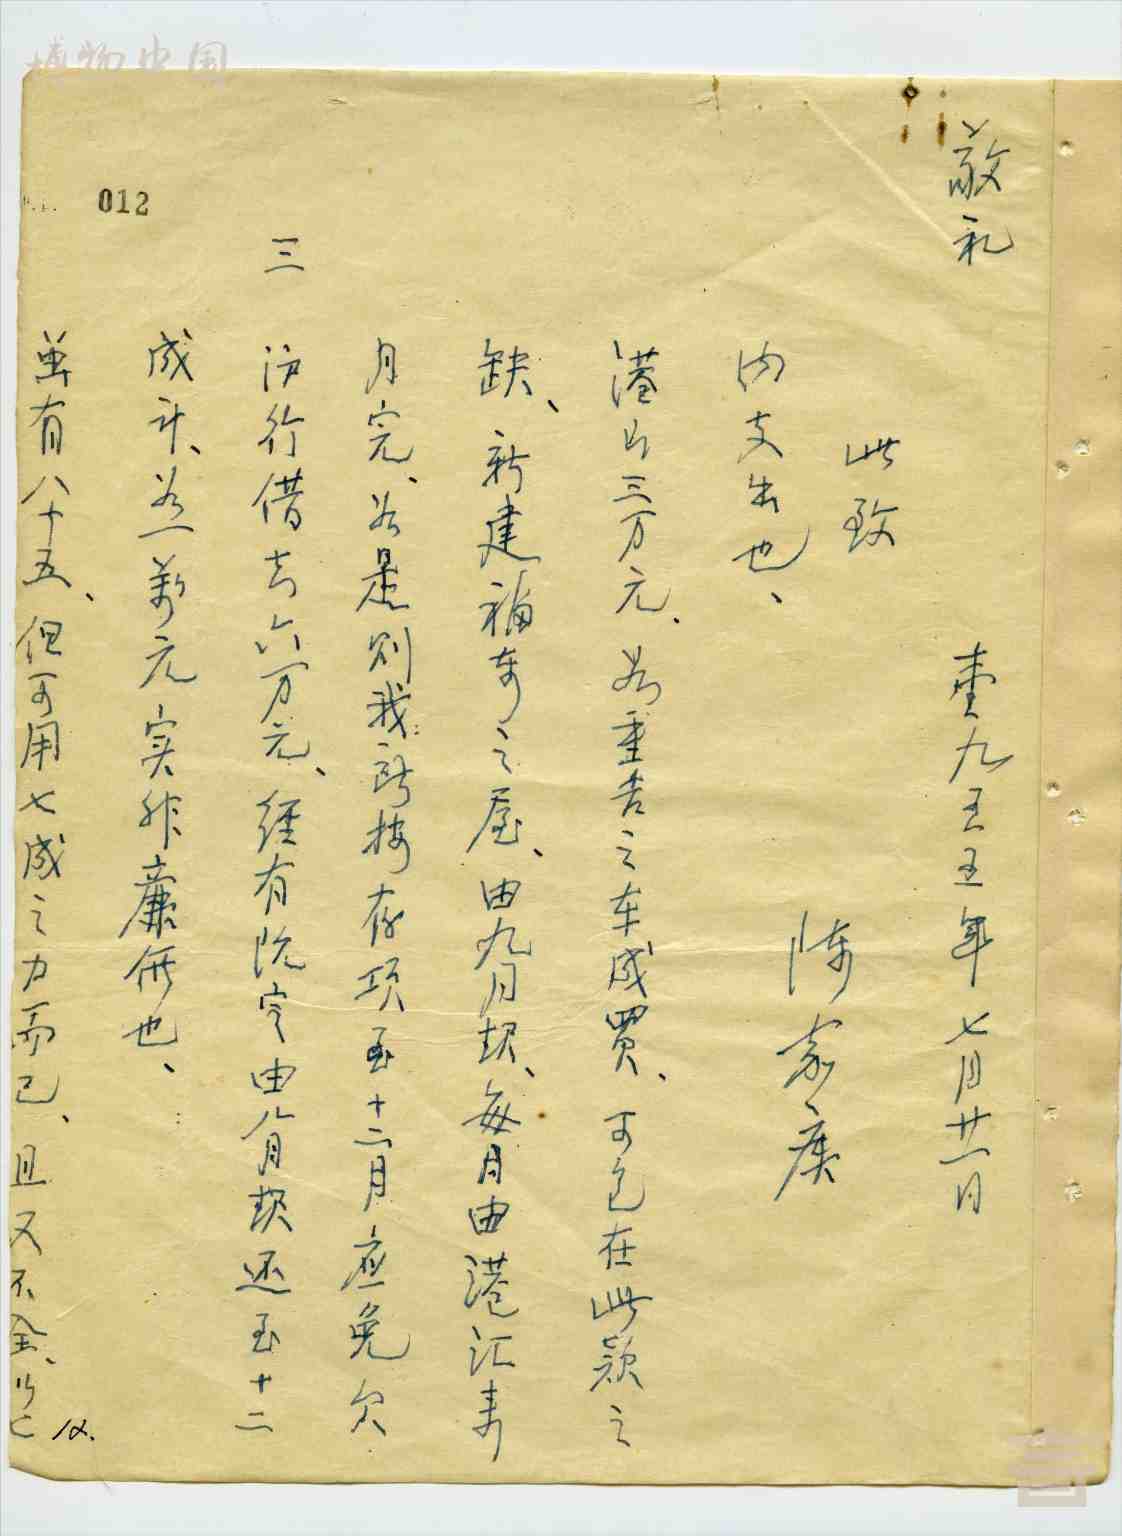 博物中国
012
虽有八十五、但可用七成之力而已、且又不全、以七
成计、若一萬元实非廉価也、
三
沪行借去六万元、經有阮定由八月起还至十二
月完、若是则我所按存项至十二月应免欠
缺、新建福東之屋、由九月起、每月由港汇来
港币三万元、若重吉之车成買、可包在此款之
内支出也、
此致
敬礼
陳嘉庚
壹九五五年七月廿一日